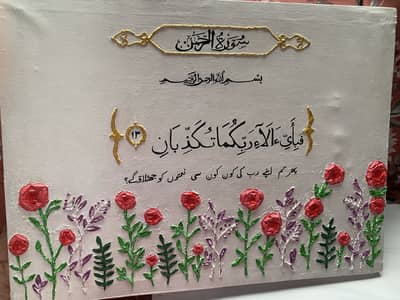 سورة الرحمن
بسم الله الرحمن الرحيم
فَبِأَيِّ آلَاءِ رَبِّكُمَا تُكَذِّبَانِ ﴿١٣﴾
پھر تم اپنے رب کی کون کون سی نعمتوں کو جھٹلاؤ گے؟